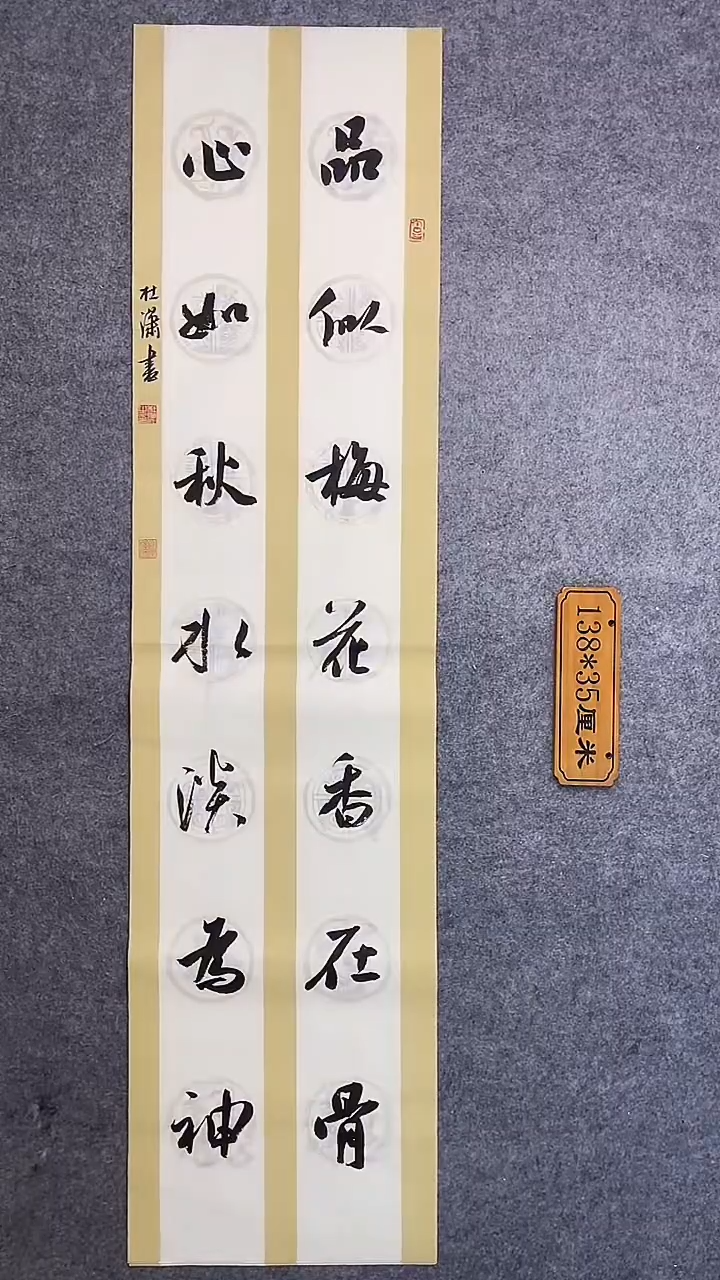 品似梅花香在骨
心如秋水淡为神
杜潇书
138*35厘米